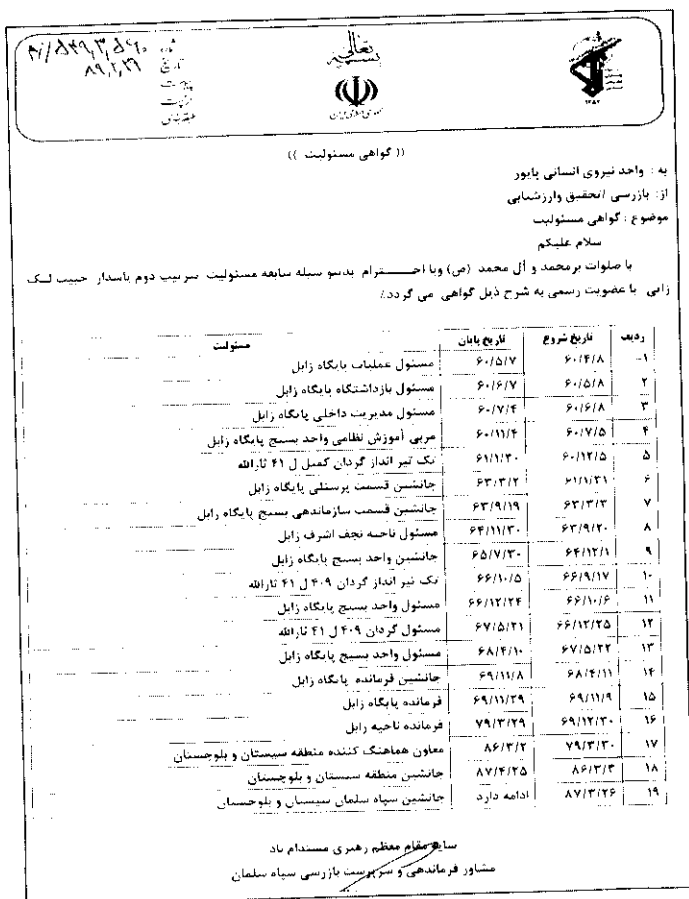 بسمه تعالی
شماره
تاریخ ۸۹,۲,۲۹
پیوست
طبقه‌بندی
جمهوری اسلامی ایران
۱۳۵۷
(( گواهی مسئولیت ))
به : واحد نیروی انسانی پایور
از: بازرسی /تحقیق وارزشیابی
موضوع : گواهی مسئولیت
سلام علیکم
با صلوات برمحمد و آل محمد (ص) وبا احترام بدینو سیله سابقه مسئولیت سرتیپ دوم پاسدار حبیب لک
زایی با عضویت رسمی به شرح ذیل گواهی می گردد/
ردیف تاریخ شروع تاریخ پایان مسئولیت
۱- ۶۰/۴/۸ ۶۰/۵/۷ مسئول عملیات پایگاه زابل
۲ ۶۰/۵/۸ ۶۰/۶/۷ مسئول بازداشتگاه پایگاه زابل
۳ ۶۰/۶/۸ ۶۰/۷/۴ مسئول مدیریت داخلی پایگاه زابل
۴ ۶۰/۷/۵ ۶۰/۱۱/۴ مربی آموزش نظامی واحد بسیج پایگاه زابل
۵ ۶۰/۱۲/۵ ۶۱/۱/۳۰ تک تیر انداز گردان کمیل ل ۴۱ ثارالله
۶ ۶۱/۱/۳۱ ۶۳/۳/۲ جانشین قسمت پرسنلی پایگاه زابل
۷ ۶۳/۳/۳ ۶۳/۹/۱۹ جانشین قسمت سازماندهی بسیج پایگاه زابل
۸ ۶۳/۹/۲۰ ۶۴/۱۱/۳۰ مسئول ناحیه نجف اشرف زابل
۹ ۶۴/۱۲/۱ ۶۵/۷/۳۰ جانشین واحد بسیج پایگاه زابل
۱۰ ۶۶/۹/۱۷ ۶۶/۱۰/۵ تک تیر انداز گردان ۴۰۹ ل ۴۱ ثارالله
۱۱ ۶۶/۱۰/۶ ۶۶/۱۲/۲۴ مسئول واحد بسیج پایگاه زابل
۱۲ ۶۶/۱۲/۲۵ ۶۷/۵/۲۱ مسئول گردان ۴۰۹ ل ۴۱ ثارالله
۱۳ ۶۷/۵/۲۲ ۶۸/۴/۱۰ مسئول واحد بسیج پایگاه زابل
۱۴ ۶۸/۴/۱۱ ۶۹/۱۱/۸ جانشین فرمانده پایگاه زابل
۱۵ ۶۹/۱۱/۹ ۶۹/۱۱/۲۹ فرمانده پایگاه زابل
۱۶ ۶۹/۱۲/۳۰ ۷۹/۳/۲۹ فرمانده ناحیه زابل
۱۷ ۷۹/۳/۳۰ ۸۶/۳/۲ معاون هماهنگ کننده منطقه سیستان و بلوچستان
۱۸ ۸۶/۳/۳ ۸۷/۴/۲۵ جانشین منطقه سیستان و بلوچستان
۱۹ ۸۷/۳/۲۶ ادامه دارد جانشین سپاه سلمان سیستان و بلوچستان
سایه مقام معظم رهبری مستدام باد
مشاور فرماندهی و سرپرست بازرسی سپاه سلمان